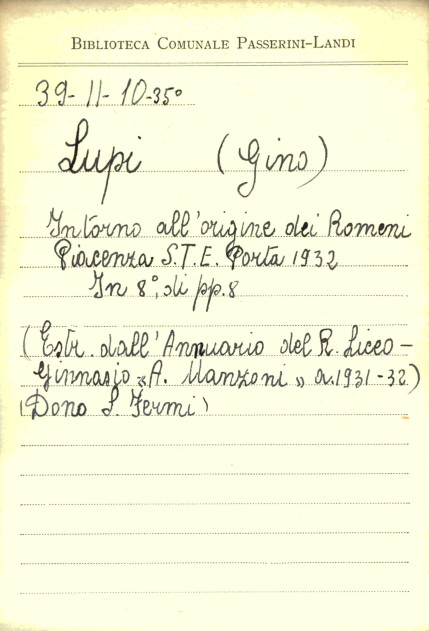 BIBLIOTECA COMUNALE PASSERINI-LANDI
39-11-10-35°
Lupi (Gino)
Intorno all'origine dei Romeni
Piacenza S.T.E. Porta 1932
In 8°, di pp. 8
(Estr. dall'Annuario del R. Liceo-
Ginnasio «A. Manzoni» a. 1931-32)
(Dono S. Fermi)